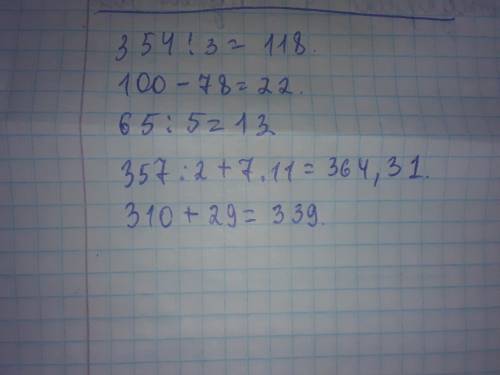 354 : 3 = 118.
100 - 78 = 22.
65 : 5 = 13
357 : 2 + 7.11 = 364,31.
310 + 29 = 339.